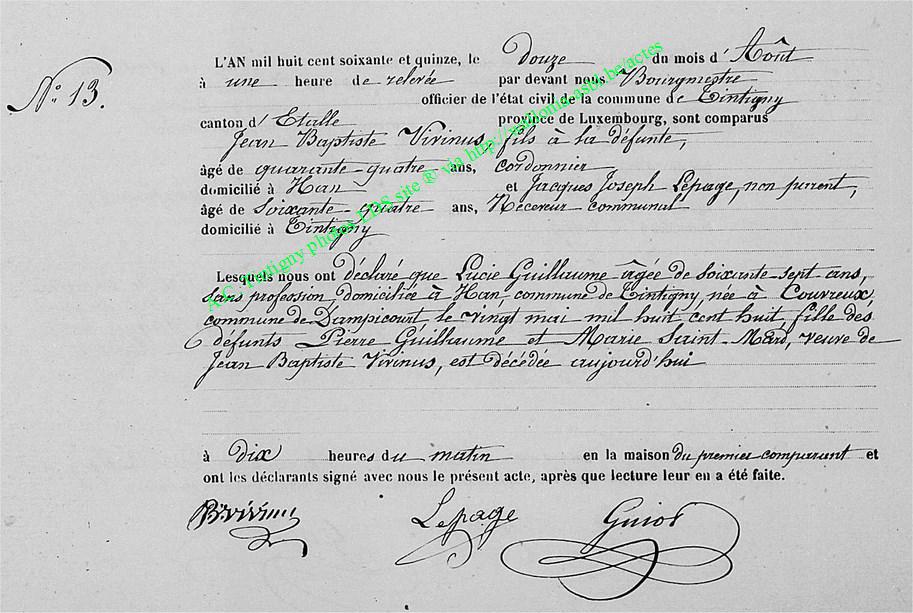 N° 13.
L'AN mil huit cent soixante et quinze, le douze du mois d'Août
à une heure de relevée par devant nous Bourgmestre
officier de l'état civil de la commune de Tintigny
canton d'Etalle province de Luxembourg, sont comparus
Jean Baptiste Virinus, fils à la défunte,
âgé de quarante-quatre ans, cordonnier
domicilié à Han et Jacques Joseph Lepage, non parent,
âgé de soixante-quatre ans, Receveur communal
domicilié à Tintigny
Lesquels nous ont déclaré que Lucie Guillaume âgée de soixante-sept ans,
sans profession, domiciliée à Han, commune de Tintigny, née à Couvreux,
commune de Dampicourt, le vingt mai mil huit cent huit, fille des
défunts Pierre Guillaume et Marie Saint-Mard, veuve de
Jean Baptiste Virinus, est décédée aujourd'hui
à dix heures du matin en la maison du premier comparant et
ont les déclarants signé avec nous le présent acte, après que lecture leur en a été faite.
Lepage
A.C. Tintigny photos EDS site ® via http://
.be/actes